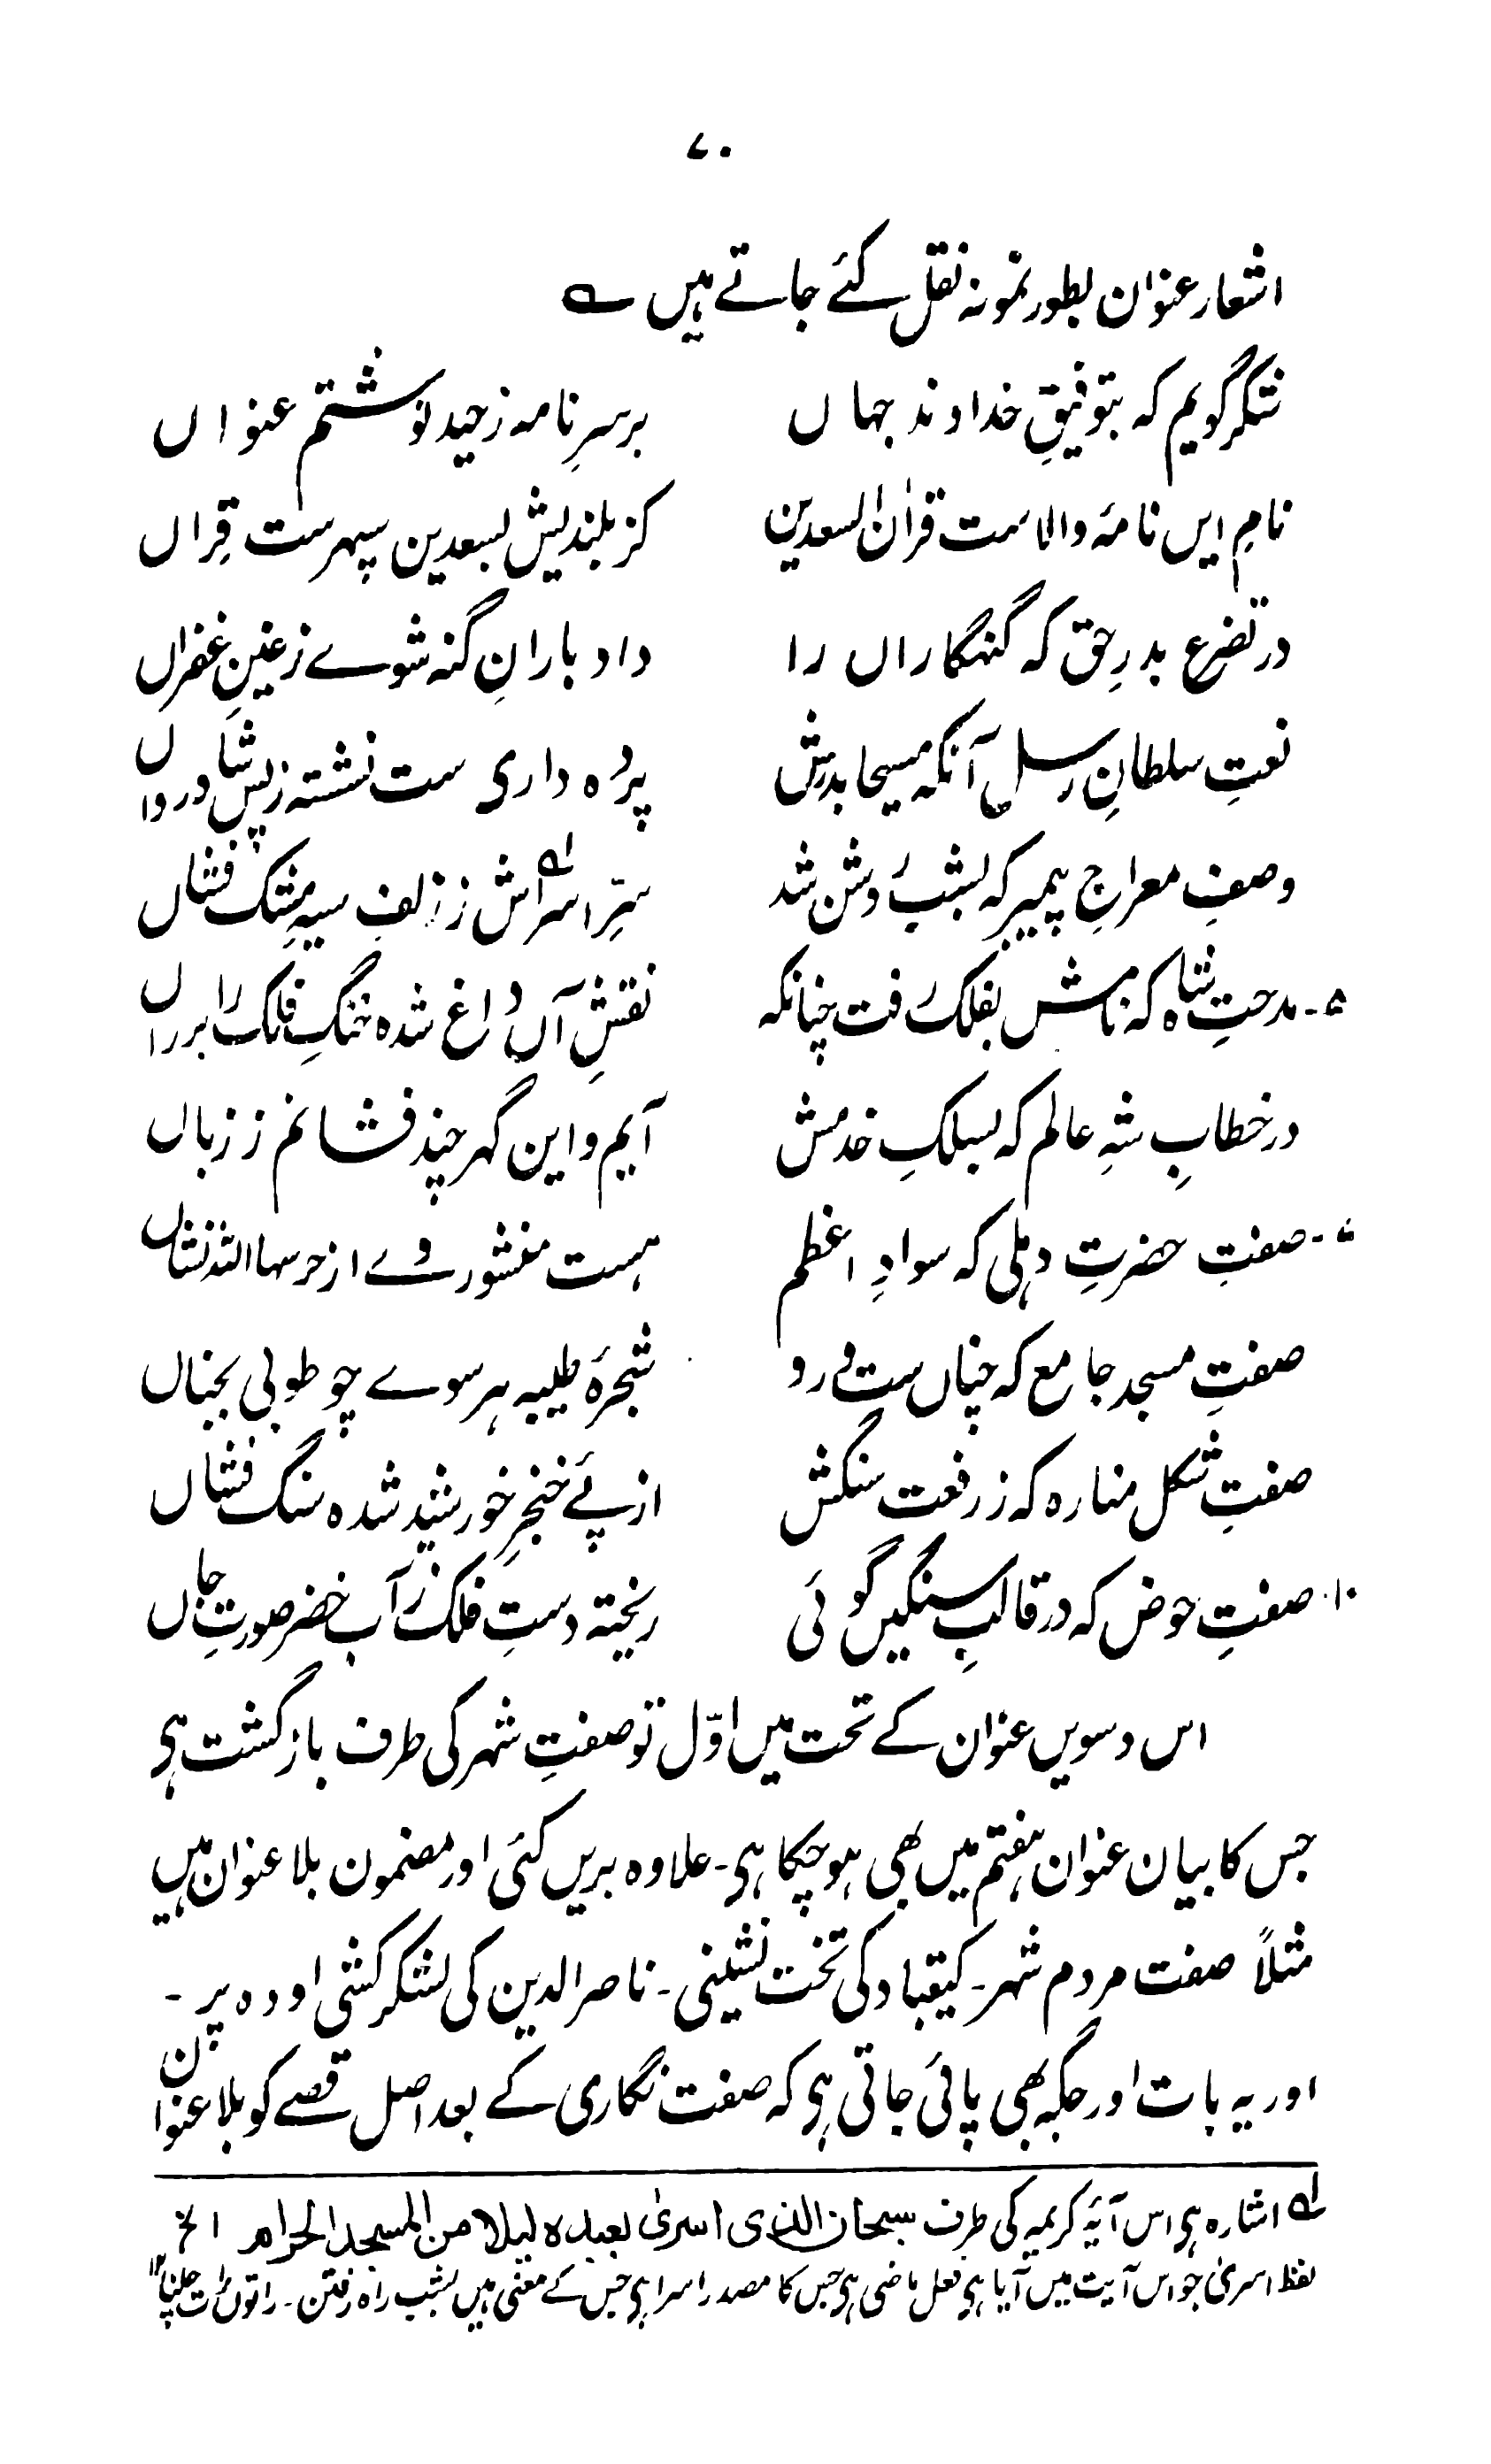 ۷۰
اشعار عنوان بطور نمونہ نقل کئے جاتے ہیں ؎
شکر گویم کہ بتوفیقِ خداوند جہاں برسرِ نامہ زحید نوشتم عنواں
نامِ ایں نامۂ والاست قرانُ السعدین کز بلندیش بسعدین سپہرست قِراں
در تضرع بدرِ حق کہ گنہگاراں را داد بارانِ گنہ شوے ز عینِ غفراں
نعتِ سلطانِ رسل آنکہ مسیحا بدرش پردہ داری ست نشستہ ز پسِ شادرواں
وصفِ معراجِ پیمبر کہ بشب روشن شد سرِّ اسراش ؎۱ ز زلفِ سیہِ مشک فشاں
۵- مدحتِ شاہ کہ نامش بفلک رفت چنانکہ نقشِ آں داغ شدہ خنگِ فلک را بر راں
در خطابِ شہِ عالم کہ بسلکِ خدمش آیم و این گہر چند فشانم ز زباں
۷- صفتِ حضرتِ دہلی کہ سوادِ اعظم ہست منشور وے از حرسہا اللہ نشاں
صفتِ مسجد جامع کہ چناں ست درو شجرۂ طیبہ ہر سوے چو طوبیٰ بجناں
صفتِ شکل منارہ کہ ز رفعت سنگش از پئے خنجرِ خورشید شدہ سنگ فشاں
۱۰- صفتِ حوض کہ در قالبِ سنگیں گوئی ریختہ دستِ فلک ز آب خضر صورتِ جاں
اس دسویں عنوان کے تحت میں اوّل تو صفتِ شہر کی طرف بازگشت ہی
جس کا بیان عنوان ہفتم میں بھی ہوچکا ہی۔ علاوہ بریں کئی اور مضمون بلا عنوان ہیں
مثلاً صفت مردم شہر۔ کیقباد کی تخت نشینی۔ ناصر الدین کی لشکر کشی اودہ پر۔
اور یہ بات اور جگہ بھی پائی جاتی ہی کہ صفت نگاری کے بعد اصل قصے کو بلا عنوان
؎۱ اشارہ ہی اس آیۂ کریمہ کی طرف سبحان الذی اسریٰ بعبدہ لیلا من المسجد الحرام الخ
لفظ اسریٰ جو اس آیت میں آیا ہی فعل ماضی ہی جس کا مصدر اسرا ہی جس کے معنی ہیں بشب راہ رفتن۔ راتوں رات چلنا ۱۲